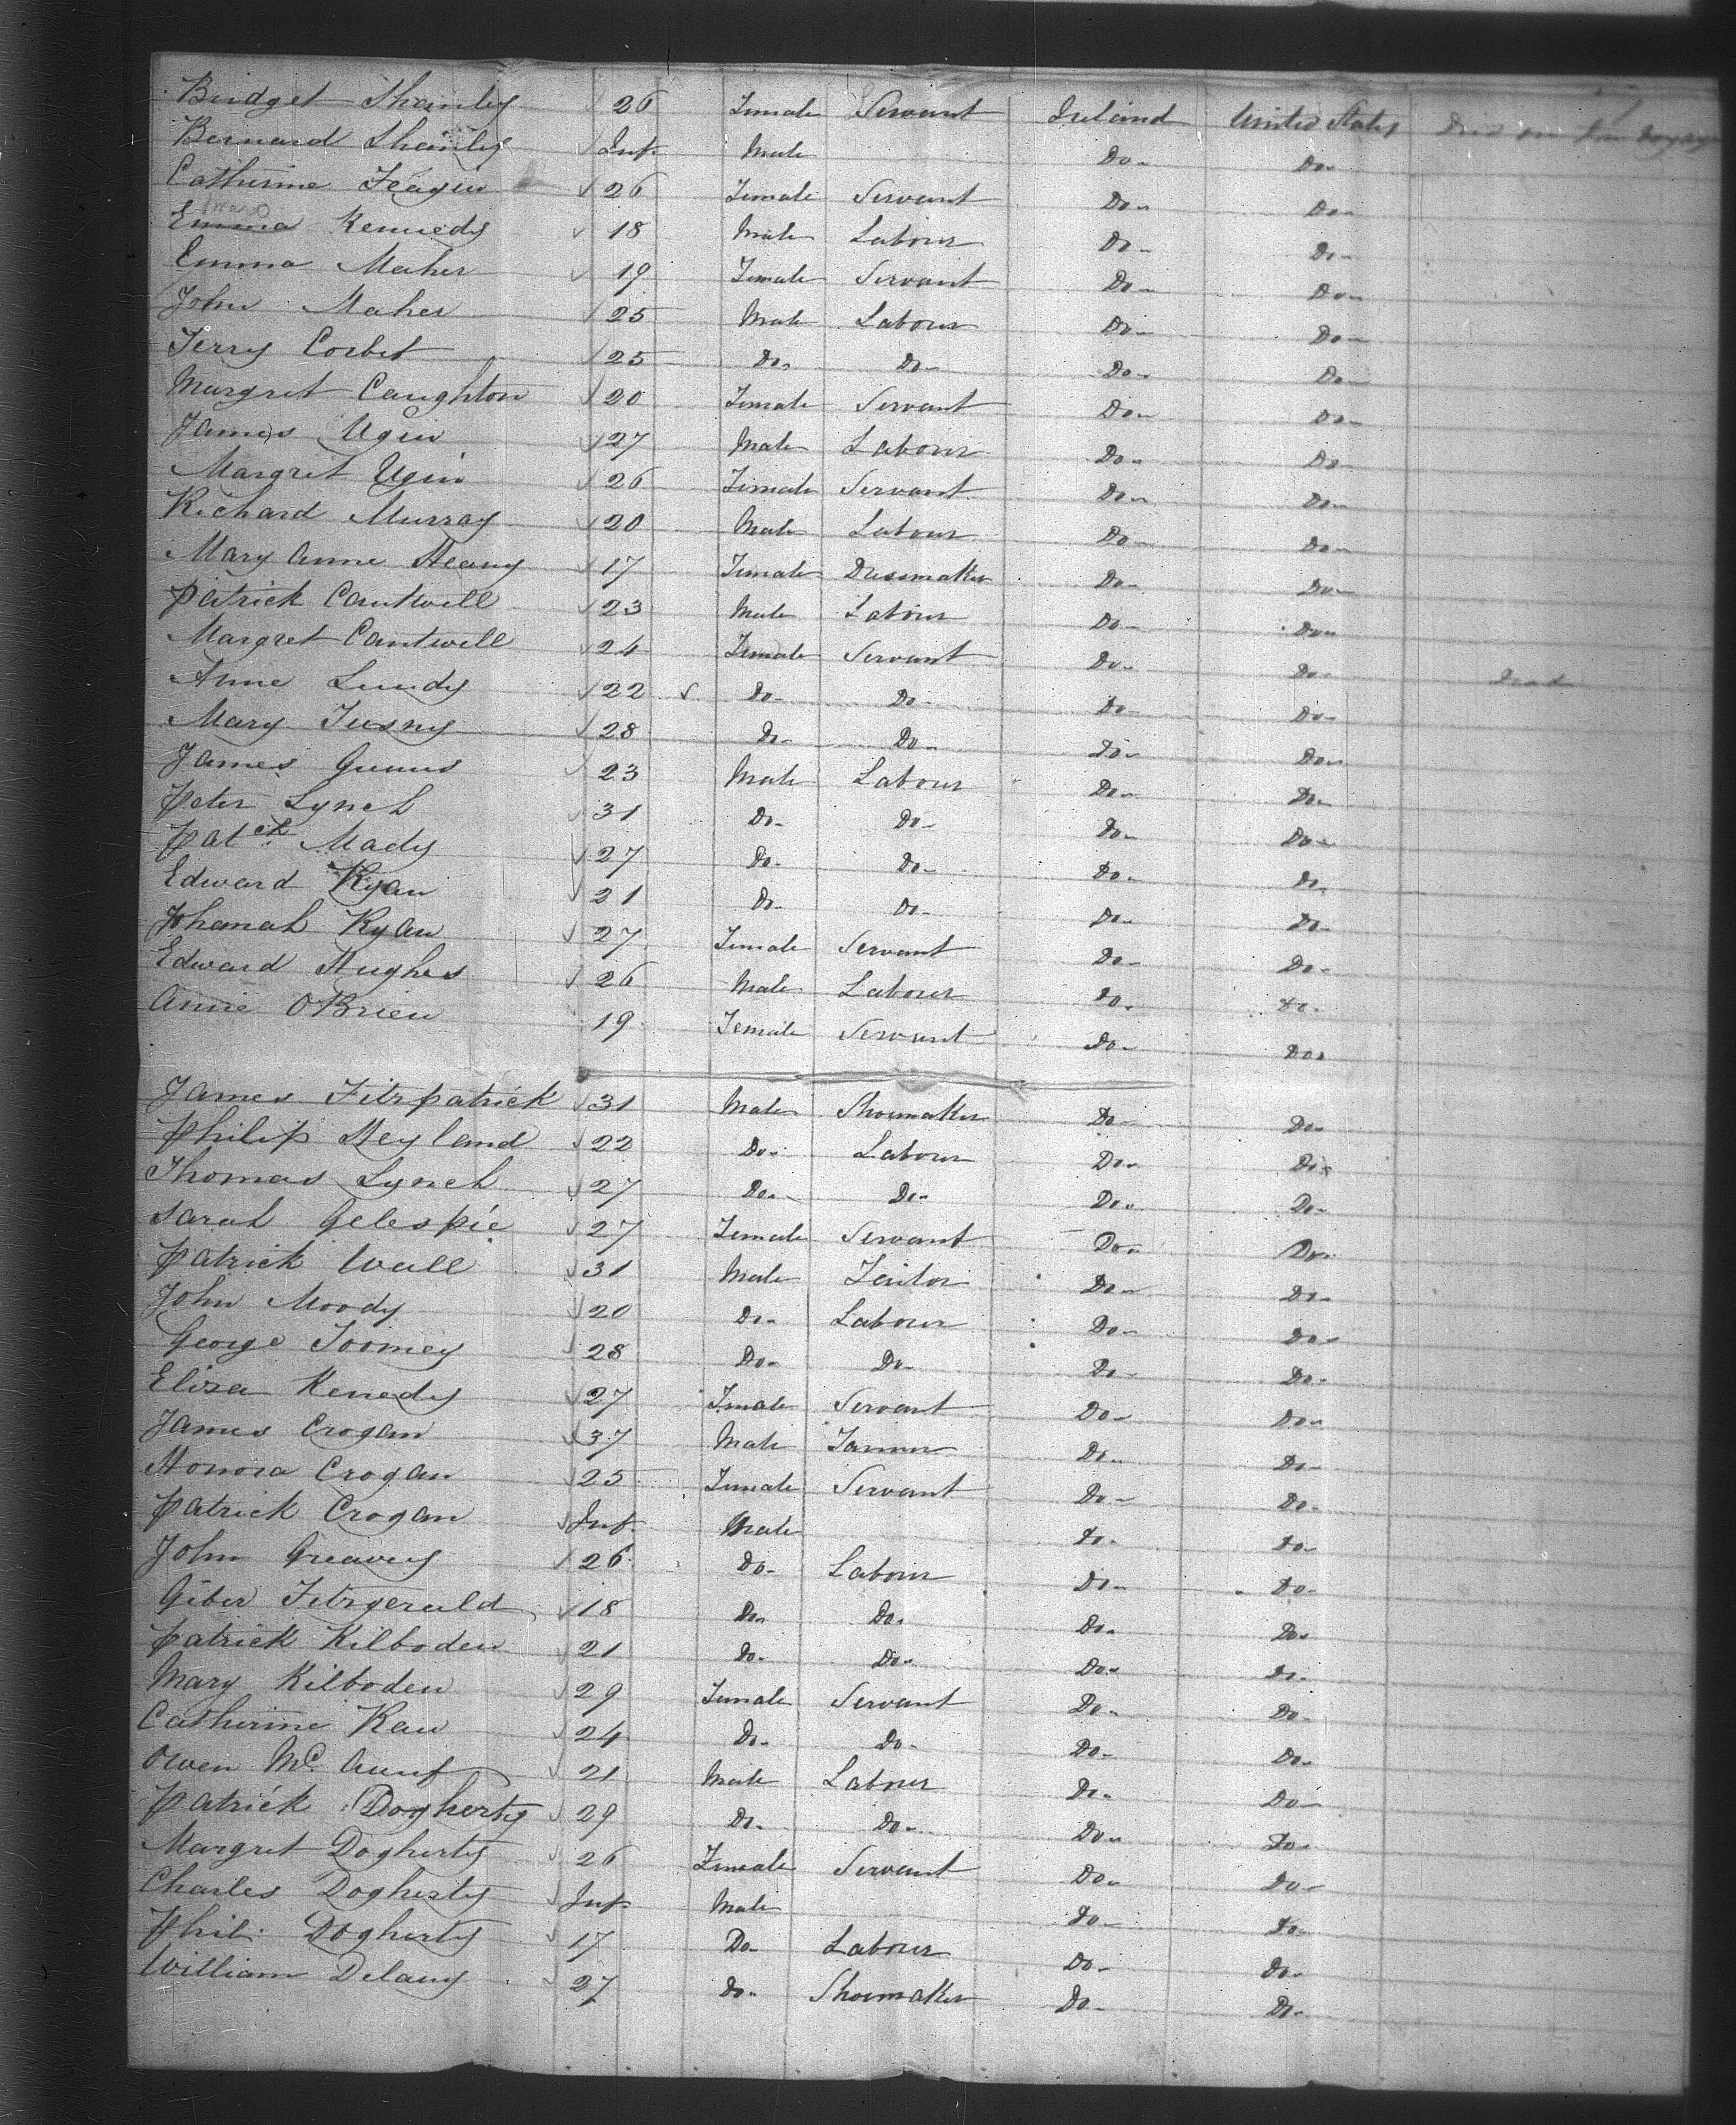 Bridget Shanley 26 Female Servant Ireland United States Died on the voyage
Bernard Shanley Inf. Male Do- Do-
Catherine Feagin 26 Female Servant Do- Do-
Emma Kennedy 18 Male Labour Do- Do-
Emma Maher 19 Female Servant Do- Do-
John Maher 25 Male Labour Do- Do-
Jerry Corbet 25 Do- Do- Do- Do-
Margret Caughton 20 Female Servant Do- Do-
James Ugin 27 Male Labour Do- Do-
Margret Ugin 26 Female Servant Do- Do-
Richard Murray 20 Male Labour Do- Do-
Mary Anne Heany 17 Female Dressmaker Do- Do-
Patrick Cantwell 23 Male Labour Do- Do-
Margret Cantwell 24 Female Servant Do- Do- Dead
Anne Lundy 22 Do- Do- Do- Do-
Mary 28 Do- Do- Do- Do-
James 23 Male Labour Do- Do-
Peter Lynch 31 Do- Do- Do- Do-
Patck Mady 27 Do- Do- Do- Do-
Edward Ryan 21 Do- Do- Do- Do-
Johanah Ryan 27 Female Servant Do- Do-
Edward Hughes 26 Male Labour Do- Do-
Annie OBrien 19 Female Servant Do- Do-
James Fitzpatrick 31 Male Shoemaker Do- Do-
Philip Heyland 22 Do- Labour Do- Do-
Thomas Lynch 27 Do- Do- Do- Do-
Sarah Gelespie 27 Female Servant Do- Do-
Patrick Wall 31 Male Tailor Do- Do-
John Moody 20 Do- Labour Do- Do-
George Toomey 28 Do- Do- Do- Do-
Eliza Kenedy 27 Female Servant Do- Do-
James Crogan 37 Male Do- Do-
Honora Crogan 25 Female Servant Do- Do-
Patrick Crogan Inf. Male Do- Do-
John Greavey 26 Do- Labour Do- Do-
Giber Fitzgerald 18 Do- Do- Do- Do-
Patrick Kilboden 21 Do- Do- Do- Do-
Mary Kilboden 29 Female Servant Do- Do-
Catherine Kaw 24 Do- Do- Do- Do-
Owen Mc. 21 Male Labour Do- Do-
Patrick Dogherty 29 Do- Do- Do- Do-
Margret Dogherty 26 Female Servant Do- Do-
Charles Dogherty Inf. Male Do- Do-
Phil. Dogherty 17 Do- Labour Do- Do-
William Delany 27 Do- Shoemaker Do- Do-